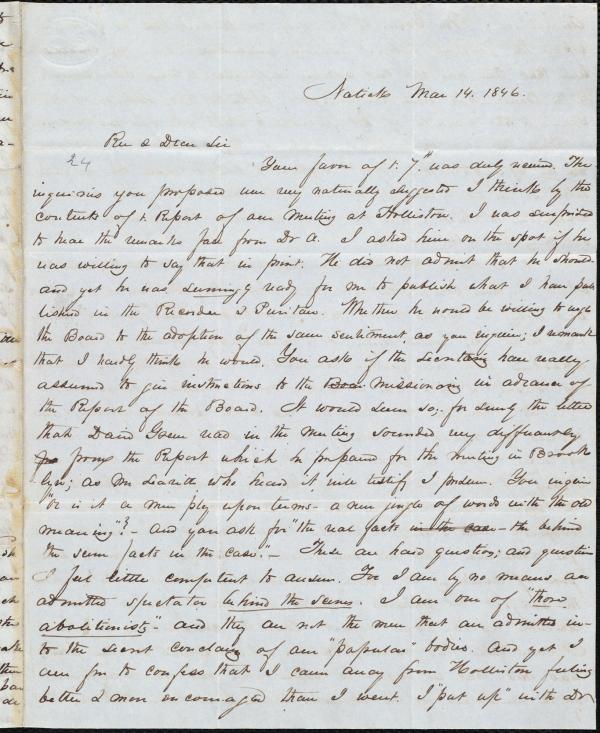 Natick Mar 14. 1846.
Rev & Dear Sir
24
Your favor of t. 7th was duly received. The
inquiries you proposed were very naturally suggested I think by the
contents of t. Report of our meeting at Holliston. I was surprised
to hear the remarks fall from Dr A. I asked him on the spot if he
was willing to say that in print. He did not admit that he should
and yet he was seemingly ready for me to publish what I have pub
lished in the Recorder & Puritan. Whether he would be willing to urge
the Board to the adoption of the same sentiment, as you inquire; I remark
that I hardly think he would. You ask if the Secretaries have really
assumed to give instructions to the Boar missionaries in advance of
the Report of the Board. It would seem so, for surely the letter
that David Green read in the meeting sounded very differently
from the Report which he prepared for the meeting in Brook
lyn; as Mr Leavitt who heard it, will testify I presume. You inquire
"or is it a mere play upon terms - a new jingle of words with the old
meaning"? - and you ask for "the real facts in the case - the behind
the scene facts in the case." - These are hard questions; and questions
I feel little competent to answer. For I am by no means an
admitted spectator behind the scenes. I am one of "those
abolitionists" - and they are not the men that are admitted in-
to the secret conclaves of our "popular" bodies. And yet I
am free to confess that I came away from Holliston feeling
better & more encouraged than I went. I "put up" with Dr